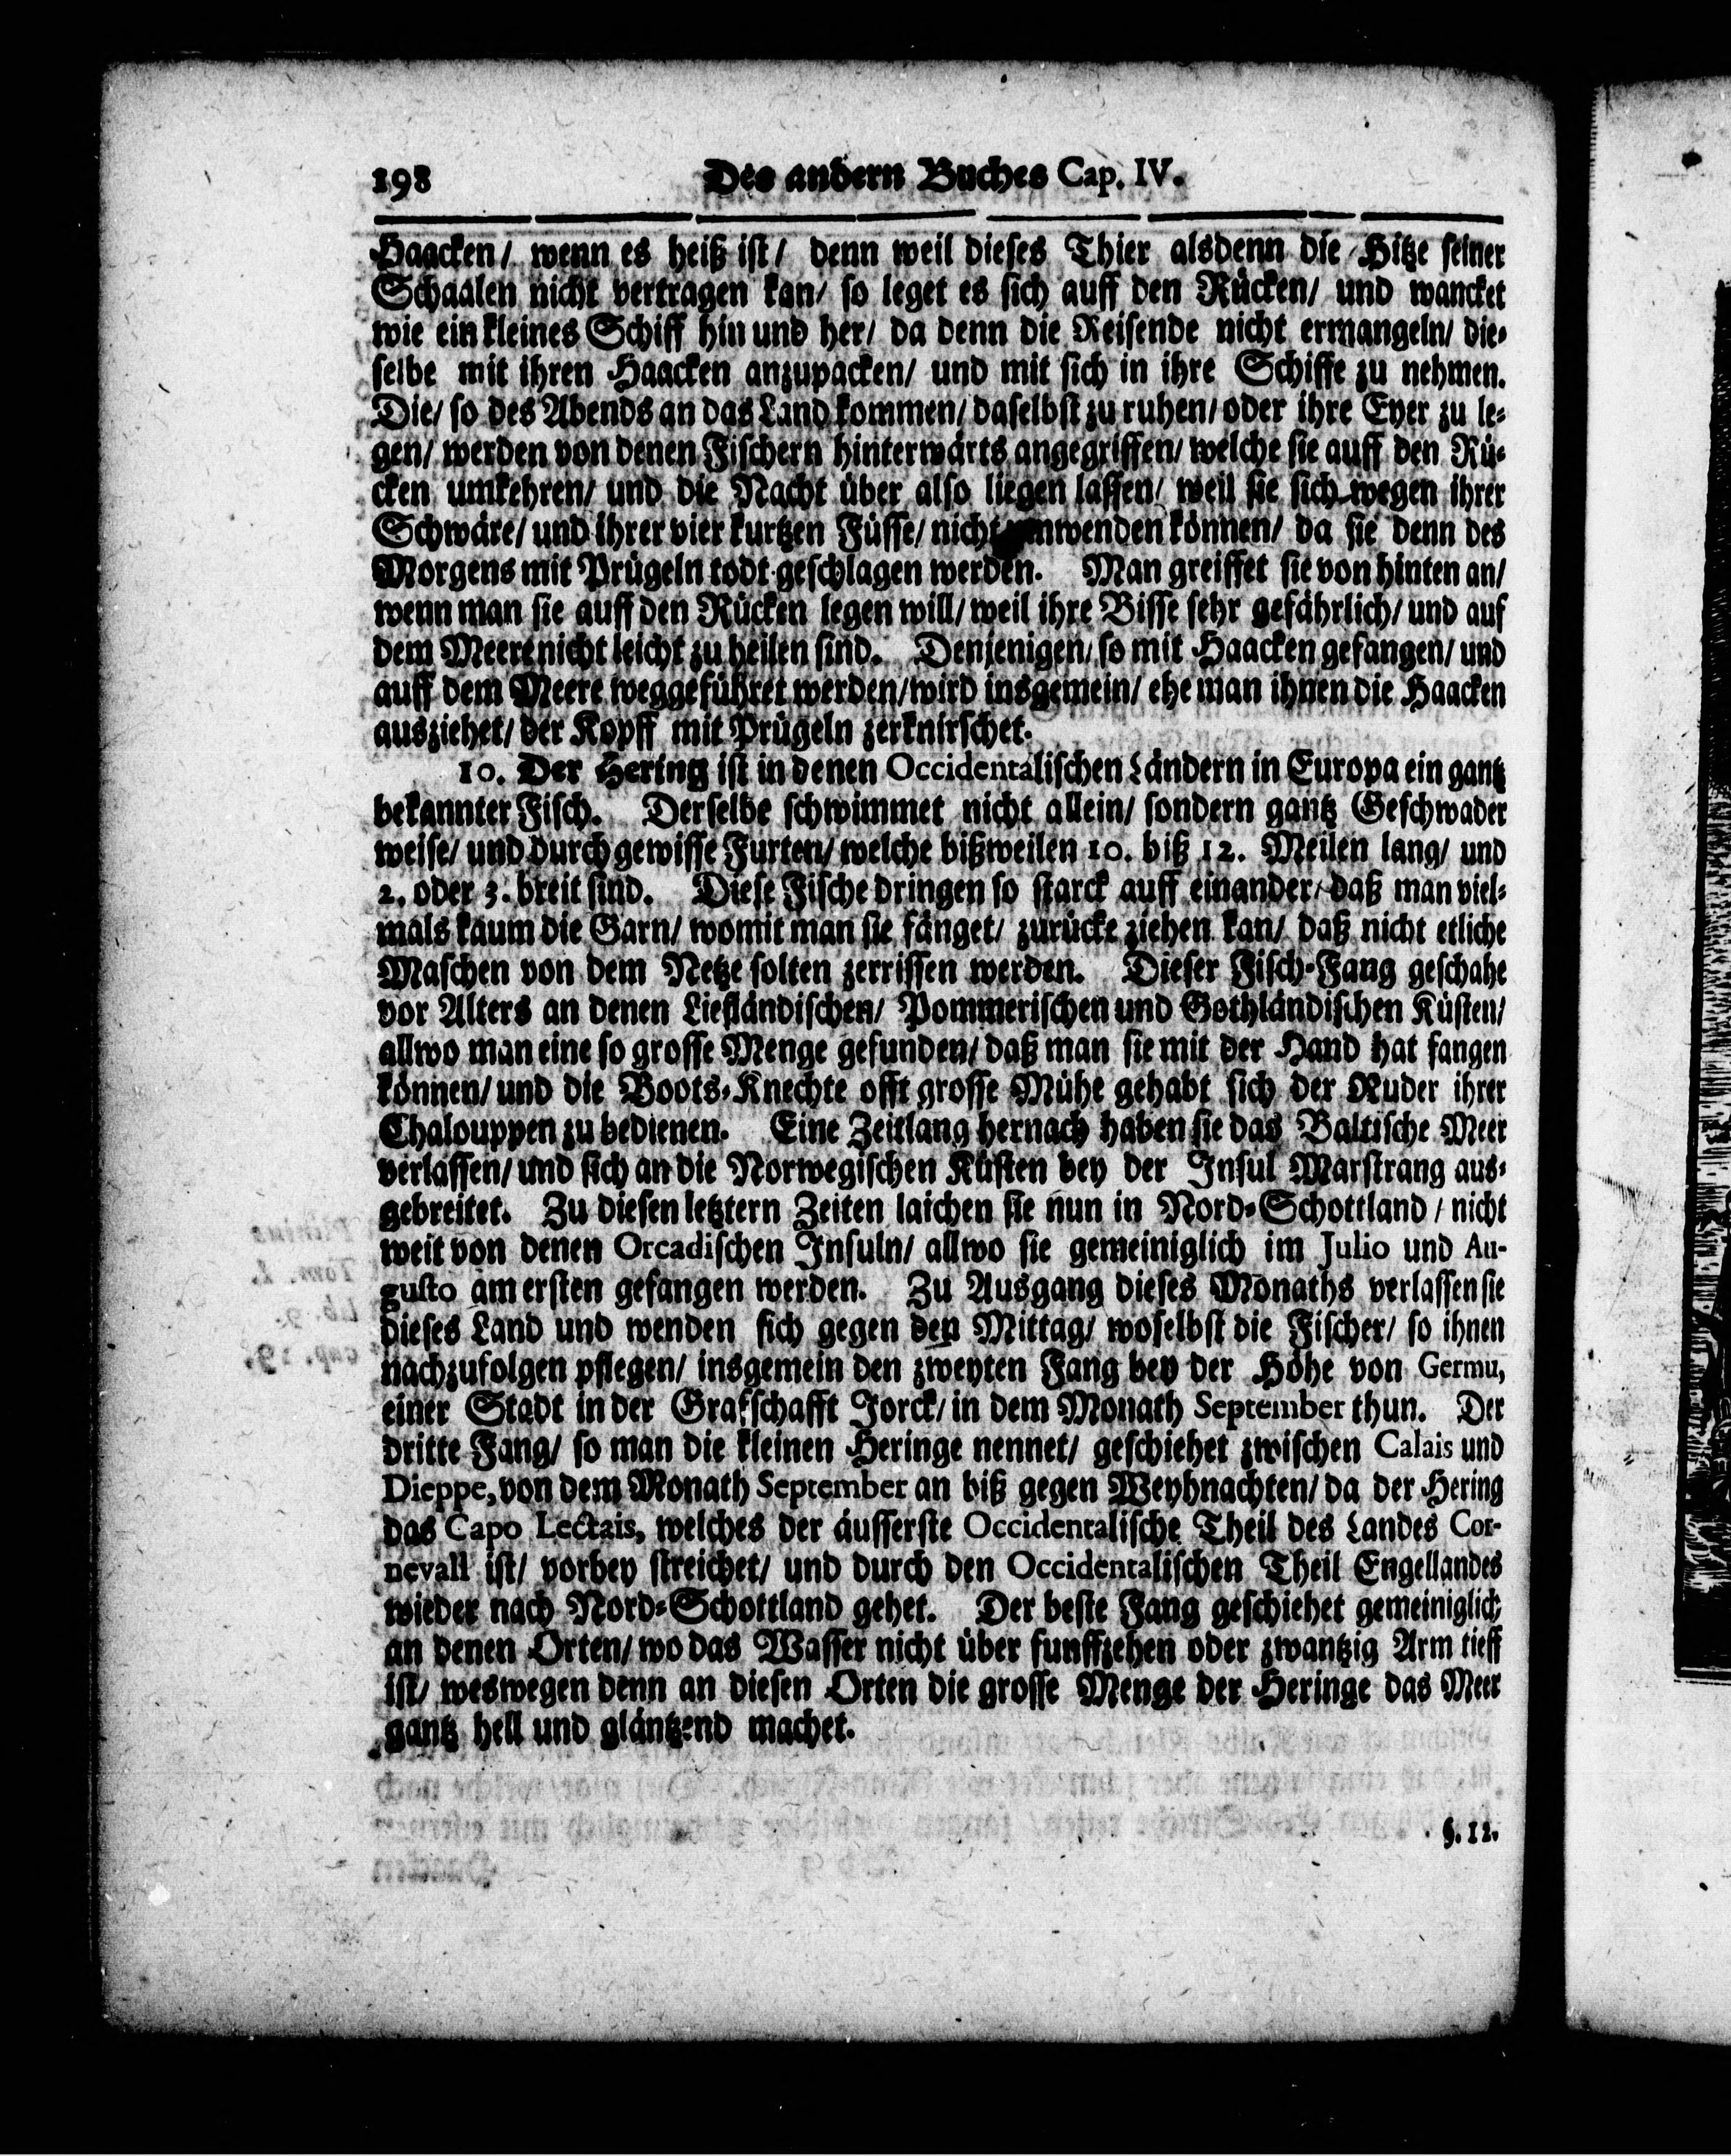 198 Des andern Buches Cap. IV.
Haacken/ wenn es heiß ist/ denn weil dieses Thier alsdenn die Hitze seiner
Schaalen nicht vertragen kan/ so leget es sich auff den Rücken/ und wancket
wie ein kleines Schiff hin und her/ da denn die Reisende nicht ermangeln/ die-
selbe mit ihren Haacken anzupacken/ und mit sich in ihre Schiffe zu nehmen.
Die/ so des Abends an das Land kommen/ daselbst zu ruhen/ oder ihre Eyer zu le-
gen/ werden von denen Fischern hinterwärts angegriffen/ welche sie auff den Rü-
cken umkehren/ und die Nacht über also liegen lassen/ weil sie sich wegen ihrer
Schwäre/ und ihrer vier kurtzen Füsse/ nicht umwenden können/ da sie denn des
Morgens mit Prügeln todt geschlagen werden. Man greiffet sie von hinten an/
wenn man sie auff den Rücken legen will/ weil ihre Bisse sehr gefährlich/ und auf
dem Meere nicht leicht zu heilen sind. Denjenigen/ so mit Haacken gefangen/ und
auff dem Meere weggeführet werden/ wird insgemein/ ehe man ihnen die Haacken
ausziehet/ der Kopff mit Prügeln zerknirschet.
10. Der Hering ist in denen Occidentalischen Ländern in Europa ein gantz
bekannter Fisch. Derselbe schwimmet nicht allein/ sondern gantz Geschwader
weise/ und durch gewisse Furten/ welche bißweilen 10. biß 12. Meilen lang/ und
2. oder 3. breit sind. Diese Fische dringen so starck auff einander/ daß man viel-
mals kaum die Garn/ womit man sie fänget/ zurücke ziehen kan/ daß nicht etliche
Maschen von dem Netze solten zerrissen werden. Dieser Fisch-Fang geschahe
vor Alters an denen Liefländischen/ Pommerischen und Gothländischen Küsten/
allwo man eine so grosse Menge gefunden/ daß man sie mit der Hand hat fangen
können/ und die Boots-Knechte offt grosse Mühe gehabt sich der Ruder ihrer
Chalouppen zu bedienen. Eine Zeitlang hernach haben sie das Baltische Meer
verlassen/ und sich an die Norwegischen Küsten bey der Insul Marstrang aus-
gebreitet. Zu diesen letztern Zeiten laichen sie nun in Nord-Schottland/ nicht
weit von denen Orcadischen Insuln/ allwo sie gemeiniglich im Julio und Au-
gusto am ersten gefangen werden. Zu Ausgang dieses Monaths verlassen sie
dieses Land und wenden sich gegen den Mittag/ woselbst die Fischer/ so ihnen
nachzufolgen pflegen/ insgemein den zweyten Fang bey der Höhe von Germu,
einer Stadt in der Grafschafft Jorck/ in dem Monath September thun. Der
dritte Fang/ so man die kleinen Heringe nennet/ geschiehet zwischen Calais und
Dieppe, von dem Monath September an biß gegen Weyhnachten/ da der Hering
das Capo Lectais, welches der äusserste Occidentalische Theil des Landes Cor-
nevall ist/ vorbey streichet/ und durch den Occidentalischen Theil Engellandes
wieder nach Nord-Schottland gehet. Der beste Fang geschiehet gemeiniglich
an denen Orten/ wo das Wasser nicht über funffzehen oder zwantzig Arm tieff
ist/ weswegen denn an diesen Orten die grosse Menge der Heringe das Meer
gantz hell und gläntzend machet.
§. 11.